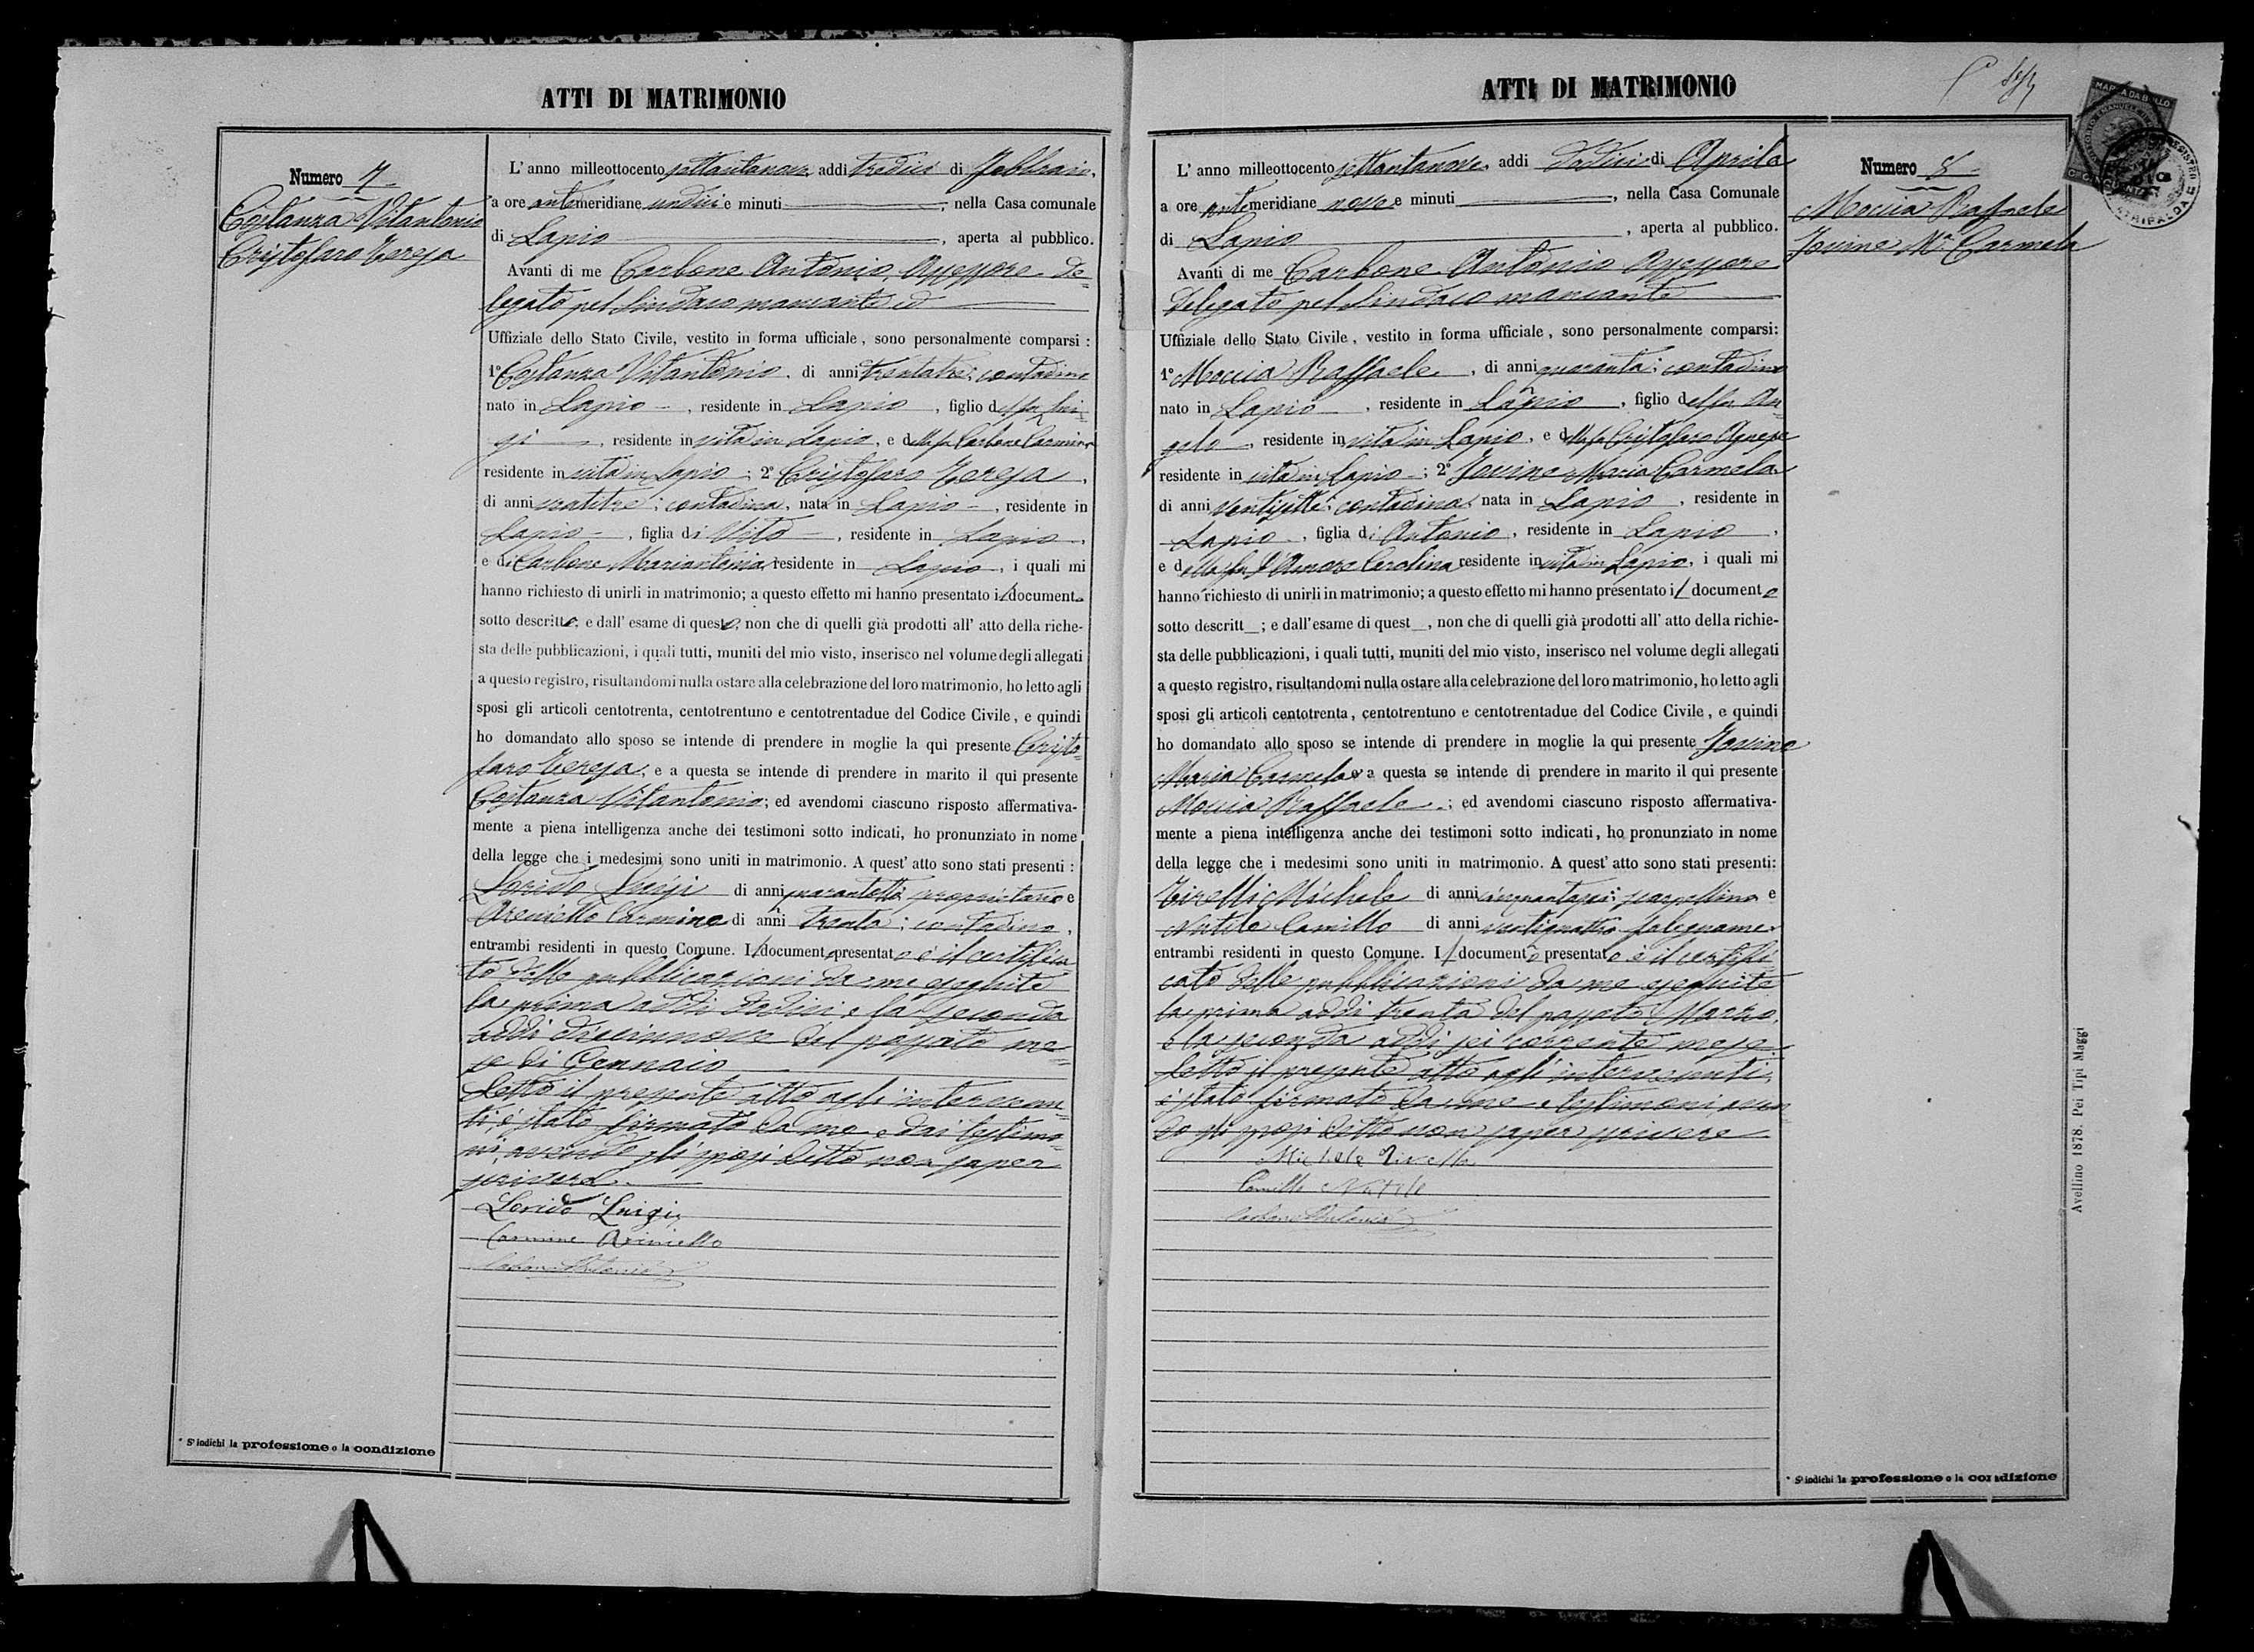 ATTI DI MATRIMONIO
Numero 7
Costanza Vitantonio
Cristofaro Teresa
L'anno milleottocento settantanove addì tredici di Febbraio,
a ore antemeridiane undici e minuti, nella Casa comunale
di Lapio, aperta al pubblico.
Avanti di me Carbone Antonio Assessore de=
legato pel Sindaco mancante ed
Uffiziale dello Stato Civile, vestito in forma ufficiale, sono personalmente comparsi:
1° Costanza Vitantonio, di anni trentatre; contadino
nato in Lapio, residente in Lapio, figlio del fu Lui=
gi, residente in vita in Lapio, e della fu Carbone Carmina
residente in vita in Lapio; 2° Cristofaro Teresa,
di anni ventitre; contadina, nata in Lapio, residente in
Lapio, figlia di Vito, residente in Lapio,
e di Carbone Mariantonia, residente in Lapio, i quali mi
hanno richiesto di unirli in matrimonio; a questo effetto mi hanno presentato il documento
sotto descritto; e dall'esame di questo, non che di quelli già prodotti all'atto della riche-
sta delle pubblicazioni, i quali tutti, muniti del mio visto, inserisco nel volume degli allegati
a questo registro, risultandomi nulla ostare alla celebrazione del loro matrimonio, ho letto agli
sposi gli articoli centotrenta, centotrentuno e centotrentadue del Codice Civile, e quindi
ho domandato allo sposo se intende di prendere in moglie la qui presente Cristo=
faro Teresa, e a questa se intende di prendere in marito il qui presente
Costanza Vitantonio; ed avendomi ciascuno risposto affermativa-
mente a piena intelligenza anche dei testimoni sotto indicati, ho pronunziato in nome
della legge che i medesimi sono uniti in matrimonio. A quest'atto sono stati presenti:
Luigi di anni quarantotto proprietario e
Areniello Carmine di anni trenta; contadino,
entrambi residenti in questo Comune. Il documento presentato è il certifica=
to delle pubblicazioni da me eseguite
la prima addì dodici, e la seconda
addì diciannove del passato me=
se di Gennaio
Letto il presente atto agli intervenu=
ti è stato firmato da me e dai testimo=
ni, avendo gli sposi detto non saper
scrivere.
Luigi
Carmine Ariniello
Carbone Antonio
* S'indichi la professione o la condizione
ATTI DI MATRIMONIO
MARCA DA BOLLO
L'anno milleottocento settantanove addì dodici di Aprile
a ore antemeridiane nove e minuti, nella Casa Comunale
di Lapio, aperta al pubblico.
Avanti di me Carbone Antonio Assessore
delegato pel Sindaco mancante
Uffiziale dello Stato Civile, vestito in forma ufficiale, sono personalmente comparsi:
1° Moccia Raffaele, di anni quaranta; contadino
nato in Lapio, residente in Lapio, figlio del fu An=
gelo, residente in vita in Lapio, e della fu Cristofaro Agnese
residente in vita in Lapio; 2° Jovine Maria Carmela
di anni ventisette; contadina, nata in Lapio, residente in
Lapio, figlia di Antonio, residente in Lapio,
e della fu D'Amore Carolina residente in vita in Lapio, i quali mi
hanno richiesto di unirli in matrimonio; a questo effetto mi hanno presentato il documento
sotto descritt_; e dall'esame di quest_, non che di quelli già prodotti all'atto della richie-
sta delle pubblicazioni, i quali tutti, muniti del mio visto, inserisco nel volume degli allegati
a questo registro, risultandomi nulla ostare alla celebrazione del loro matrimonio, ho letto agli
sposi gli articoli centotrenta, centotrentuno e centotrentadue del Codice Civile, e quindi
ho domandato allo sposo se intende di prendere in moglie la qui presente Jovine
Maria Carmela e a questa se intende di prendere in marito il qui presente
Moccia Raffaele; ed avendomi ciascuno risposto affermativa-
mente a piena intelligenza anche dei testimoni sotto indicati, ho pronunziato in nome
della legge che i medesimi sono uniti in matrimonio. A quest'atto sono stati presenti:
Tirelli Michele di anni cinquantasei; scarpellino e
Natale Camillo di anni ventiquattro falegname
entrambi residenti in questo Comune. Il documento presentato è il certifi=
cato delle pubblicazioni da me eseguite
la prima addì trenta del passato Marzo,
e la seconda addì sei corrente mese
Letto il presente atto agli intervenuti,
è stato firmato da me e testimoni, aven=
do gli sposi detto non saper scrivere
Michele Tirella
Camillo Natale
Carbone Antonio
Numero 8
Moccia Raffaele
Jovine M.a Carmela
* S'indichi la professione o la condizione
Avellino 1878. Pei Tipi Maggi